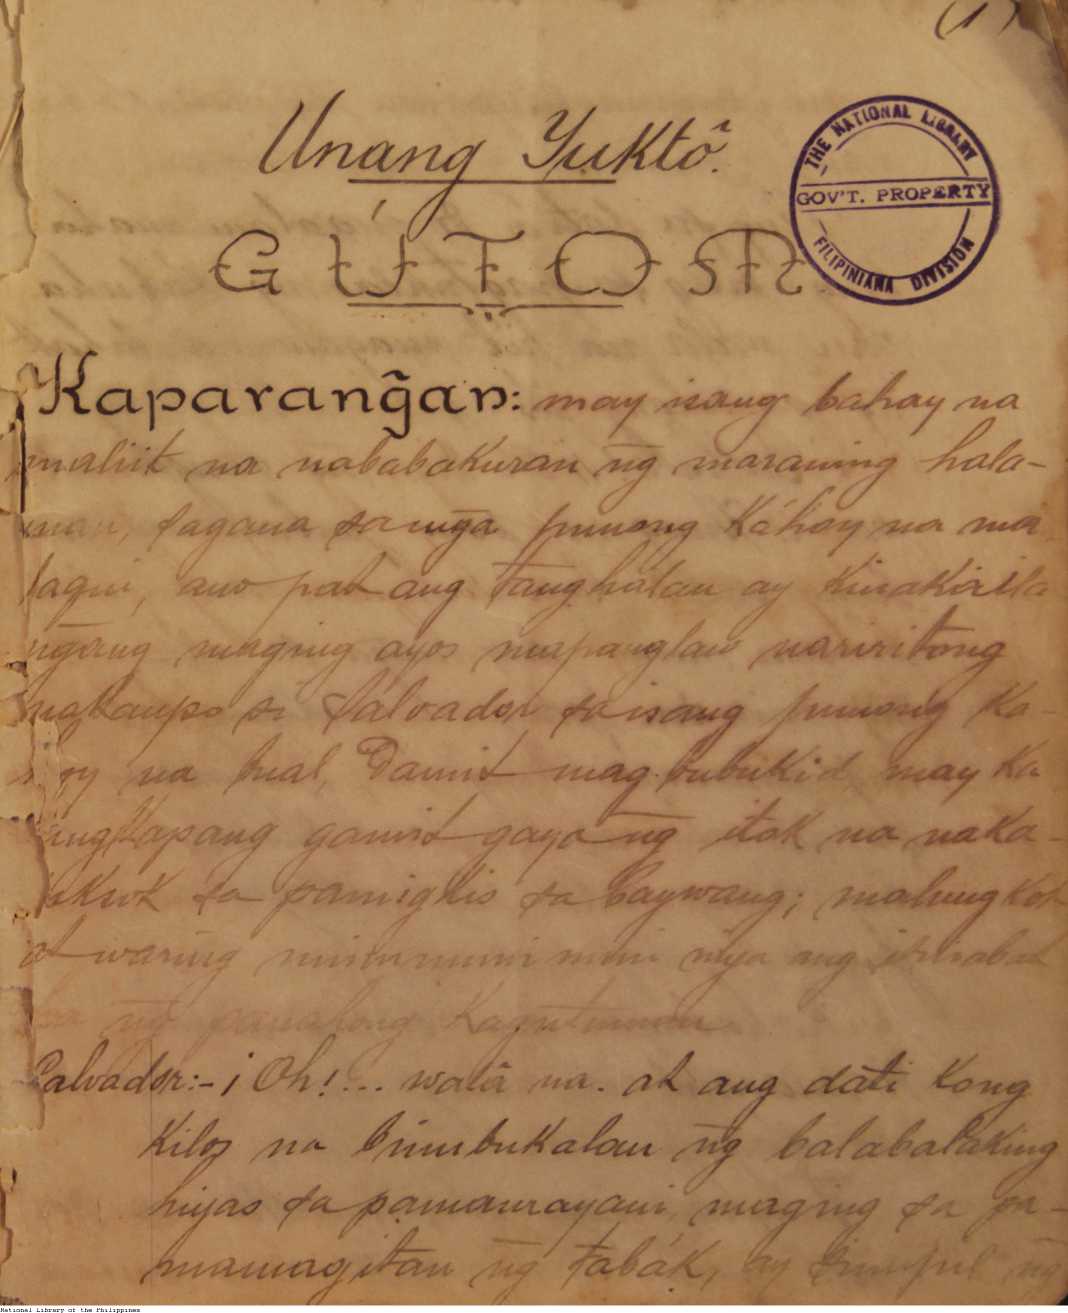 (1)
Unang Yuktô.
THE NATIONAL LIBRARY
GOV'T. PROPERTY
FILIPINIANA DIVISION
GÚTOM
Kaparang̃an: may isang bahay na
maliit na nababakuran n̄g maraming hala-
man, sagana sa mg̃a punong Káhoy na ma
lagui, ano pat ang tanghalan ay Kinakaila
n̄gang maging ayos mapanglaw nariritong
nagkaupo si Salvador sa isang punong Ka-
hoy na bual, Damit mag bubukid, may Ka
sangkapang gamit gaya n̄g itak na naka-
sa pamigkis sa baywang; malungkot
at waring niya ang
n̄g panahong Kagutuman
Salvador:- ¡Oh!... walâ na. at ang dáti Kong
Kilos na binubukalan n̄g balabalaking
hiyas sa pamamayani, maging sa pa-
mamagitan n̄g tabák, ay n̄g
National Library of the Philippines